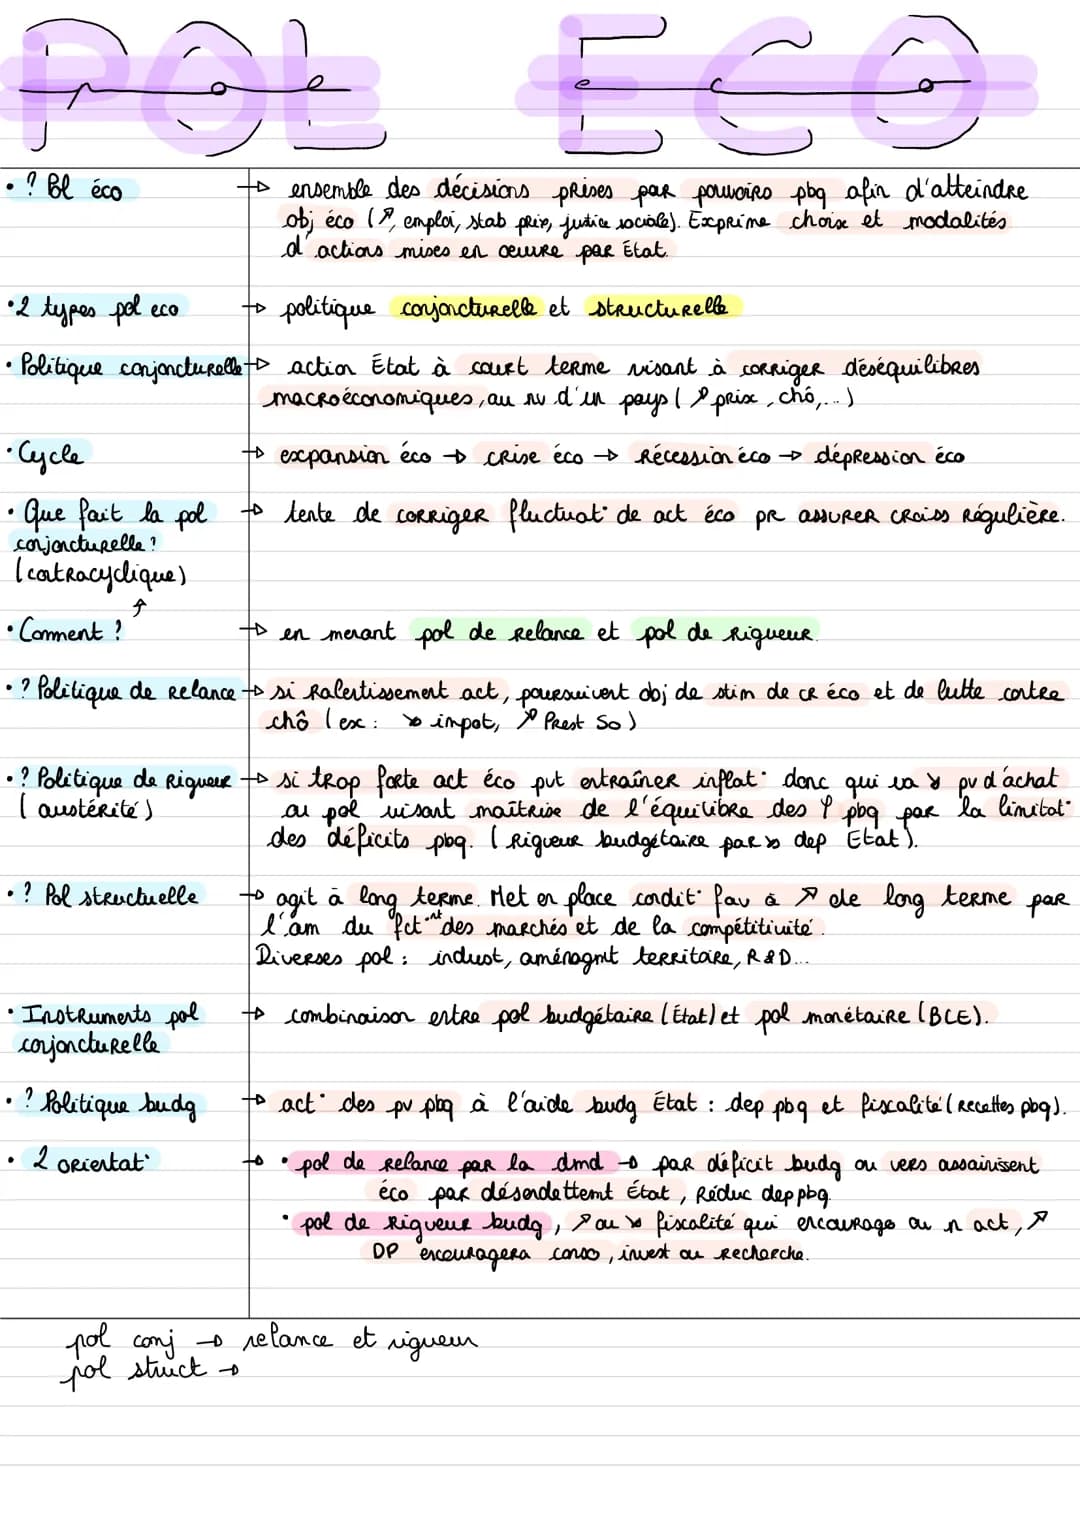 POL ECO
pol eco
• ? Pol éco → ensemble des décisions prises par pouvoirs pbq afin d'atteindre
obj éco (↗, emploi, stab prix, justice sociale). Exprime choix et modalités
d'actions mises en œuvre par État.
• 2 types pol eco → politique conjoncturelle et structurelle
• Politique conjoncturelle → action État à court terme visant à corriger déséquilibres
macroéconomiques, au nv d'un pays (↗ prix, chô,...)
• Cycle → expansion éco → crise éco → Récession éco → dépression éco
• Que fait la pol → tente de corriger fluctuat° de act éco pr assurer croiss Régulière.
conjoncturelle ?
(contracyclique)
↑
• Comment ? → en menant pol de relance et pol de Rigueur.
• ? Politique de relance → si Ralentissement act, poursuivent obj de stim de cr éco et de lutte contre
chô (ex : ↘ impot, ↗ Prest So)
• ? Politique de Rigueur → si trop forte act éco put entraîner inflat° donc qui va ↘ pv d'achat
(austérité) ou pol visant maîtrise de l'équilibre des pbq par la limitat°
des déficits pbq. (Rigueur budgétaire par ↘ dep État).
• ? Pol structuelle → agit à long terme. Met en place condit° fav à ↗ de long terme par
l'am du fct°nt des marchés et de la compétitivité.
Diverses pol : indust, aménagmt territoire, R&D...
• Instruments pol → combinaison entre pol budgétaire (État) et pol monétaire (BCE).
conjoncturelle
• ? Politique budg → act° des pv pbq à l'aide budg État : dep pbq et fiscalité (Recettes pbq).
• 2 orientat° → • pol de relance par la dmd → par déficit budg ou vers assainissent
éco par désendettemt État, Réduc dep pbq.
• pol de Rigueur budg, ↗ ou ↘ fiscalité qui encourage ou n act, ↗
DP encouragera conso, invest ou Recherche.
pol conj → relance et rigueur
pol struct →